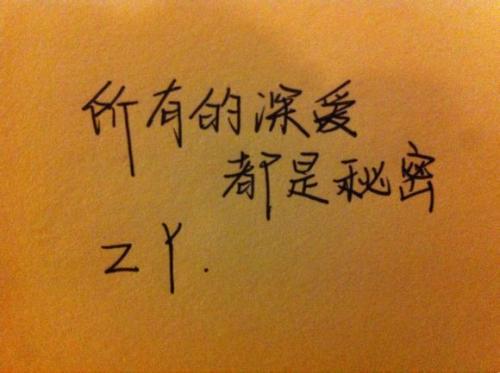 所有的深爱
都是秘密
ZY.